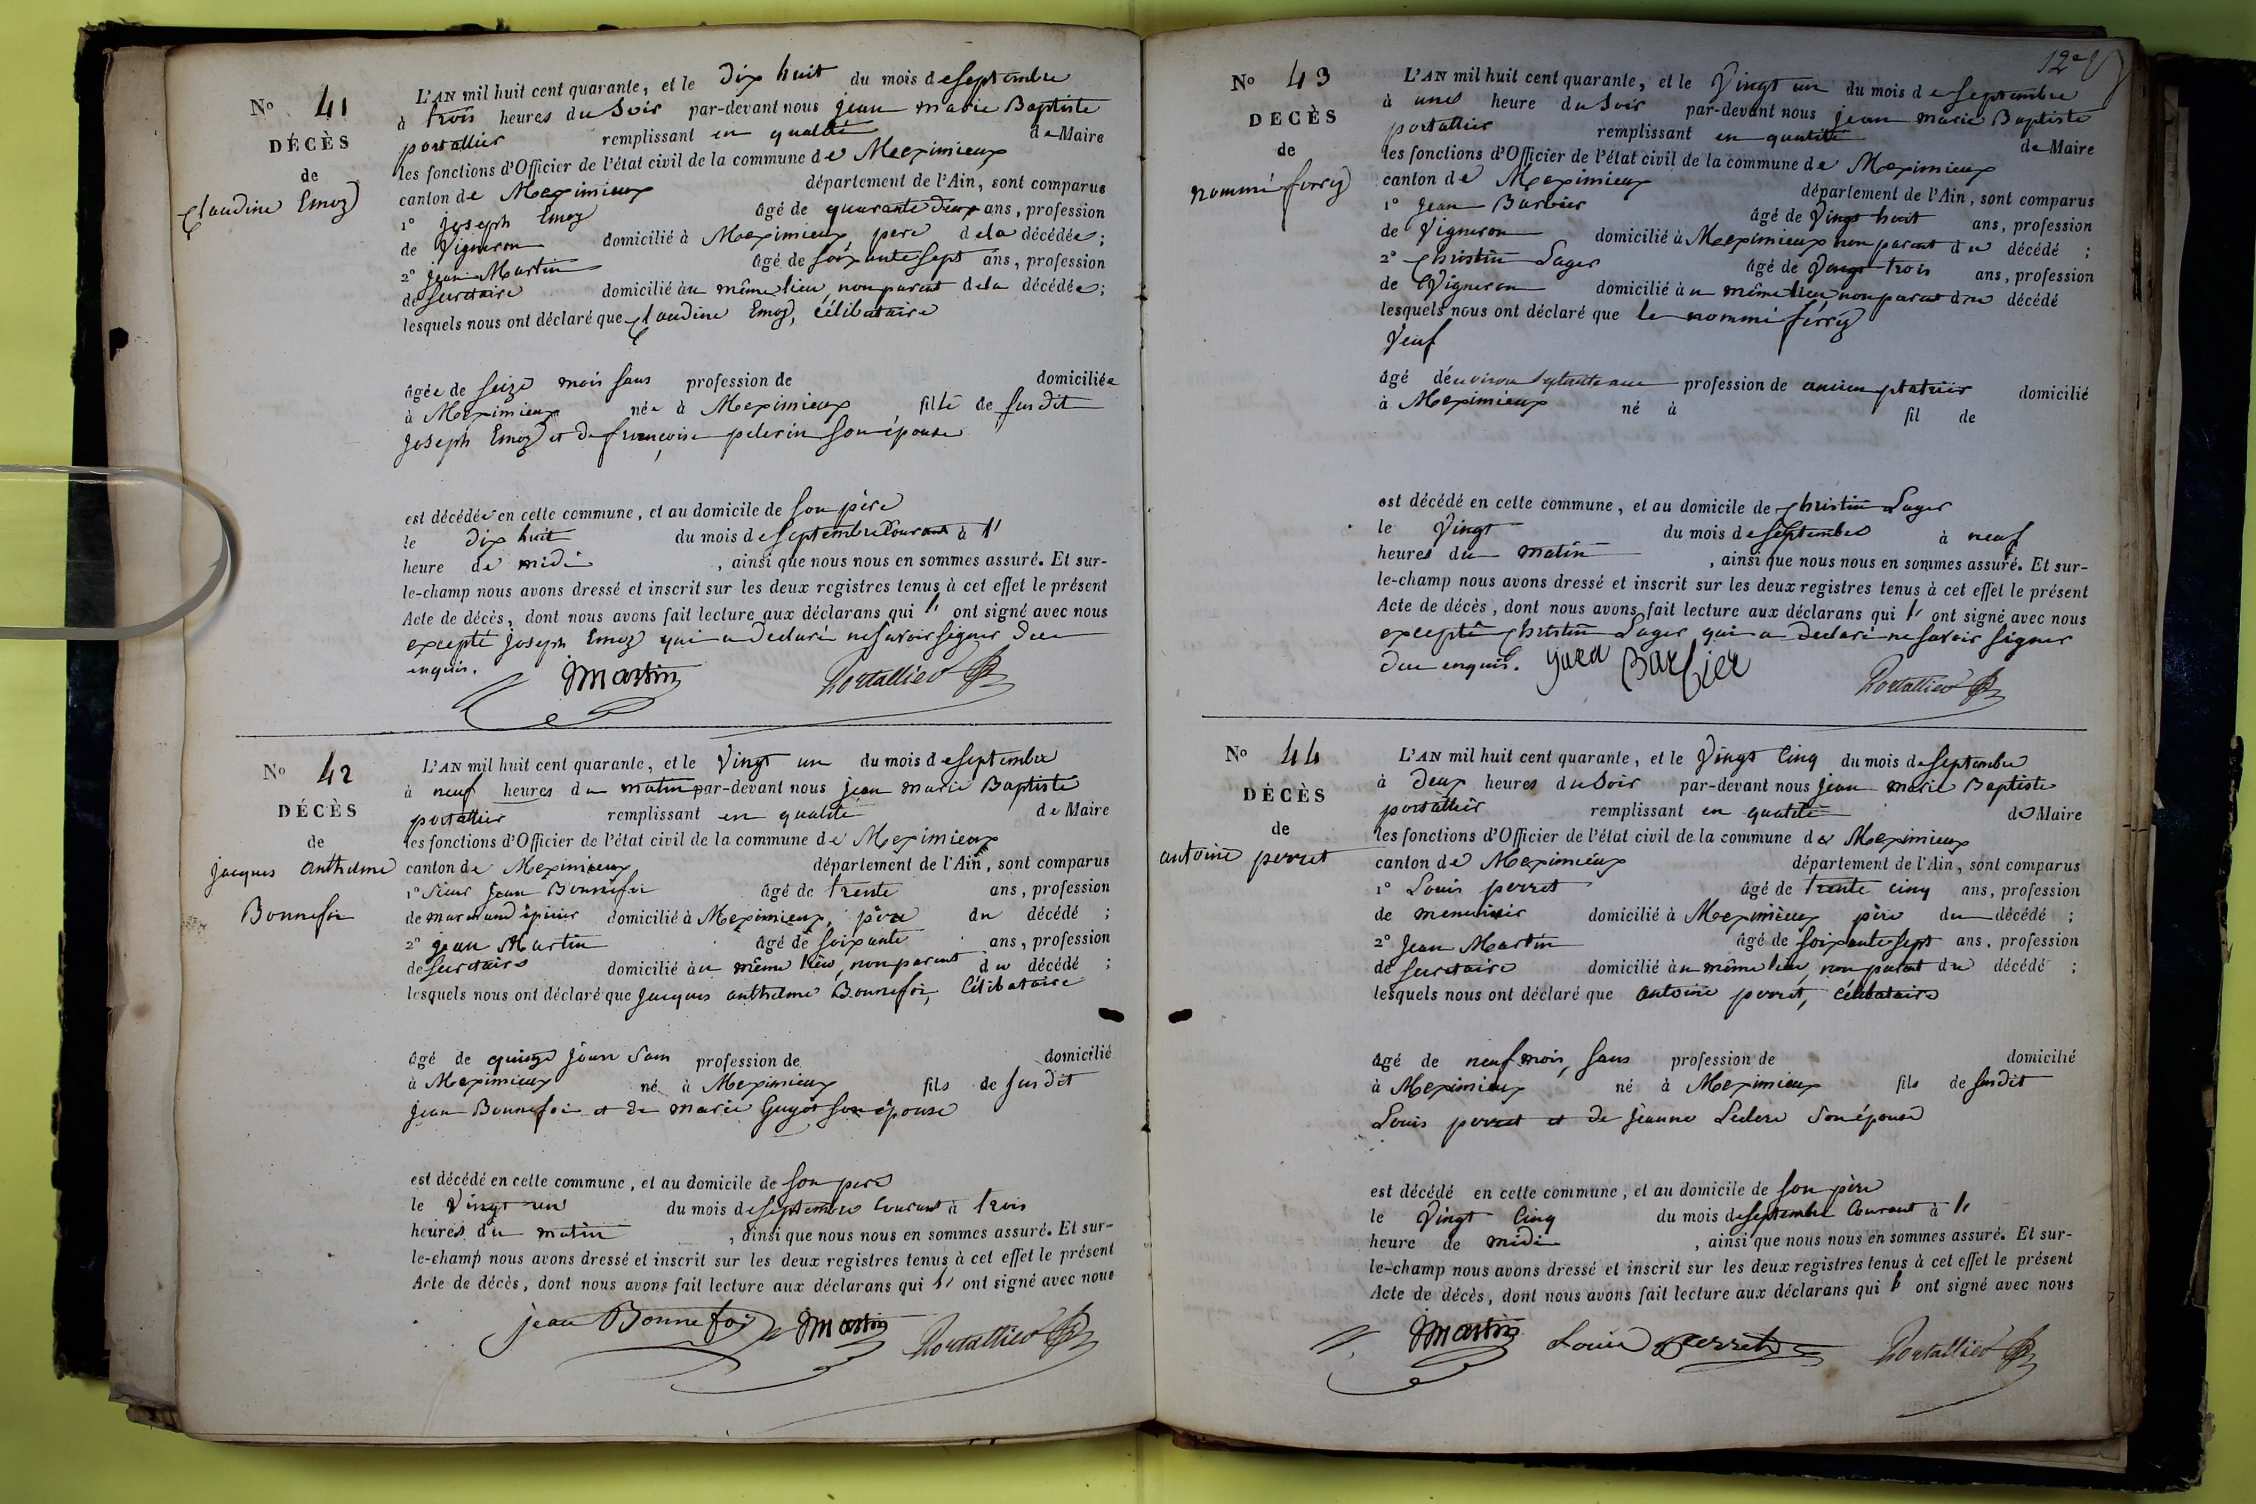 N° 41
DÉCÈS
de
Claudine Emoz
L'AN mil huit cent quarante, et le dix huit du mois de Septembre
à trois heures du Soir par-devant nous jean marie Baptiste
portallier remplissant en qualité de Maire
les fonctions d'Officier de l'état civil de la commune de Meximieux
canton de Meximieux département de l'Ain, sont comparus
1° joseph Emoz âgé de quarante deux ans, profession
de Vigneron domicilié à Meximieux pere de la décédée ;
2° jean Martin âgé de soixante sept ans, profession
de Secretaire domicilié au même lieu, non parent de la décédée ;
lesquels nous ont déclaré que Claudine Emoz, célibataire
âgée de seize mois sans profession de domiciliée
à Meximieux née à Meximieux fille de susdit
Joseph Emoz et de françoise pelerin son épouse
est décédée en cette commune, et au domicile de son père
le dix huit du mois de Septembre Courant à 1'
heure de midi , ainsi que nous nous en sommes assuré. Et sur-
le-champ nous avons dressé et inscrit sur les deux registres tenus à cet effet le présent
Acte de décès, dont nous avons fait lecture aux déclarans qui l' ont signé avec nous
excepté joseph Emoz qui a declaré ne savoir signer de ce
enquis. JMartin Portallier
N° 42
DÉCÈS
de
jacques anthelme
Bonnefoi
L'AN mil huit cent quarante, et le vingt un du mois de Septembre
à neuf heures du matin par-devant nous jean marie Baptiste
portallier remplissant en qualité de Maire
les fonctions d'Officier de l'état civil de la commune de Meximieux
canton de Meximieux département de l'Ain, sont comparus
1° sieur Jean Bonnefoi âgé de trente ans, profession
de marchand épicier domicilié à Meximieux, père du décédé ;
2° jean Martin âgé de soixante ans, profession
de Secretaire domicilié au même lieu, non parent du décédé ;
lesquels nous ont déclaré que jacques anthelme Bonnefoi, Célibataire
âgé de quinze jours sans profession de domicilié
à Meximieux né à Meximieux fils de susdit
jean Bonnefoi et de marie Guyot son épouse
est décédé en cette commune, et au domicile de son pere
le Vingt un du mois de Septembre Courant à trois
heures du matin , ainsi que nous nous en sommes assuré. Et sur-
le-champ nous avons dressé et inscrit sur les deux registres tenus à cet effet le présent
Acte de décès, dont nous avons fait lecture aux déclarans qui l' ont signé avec nous
jean Bonnefoi JMartin Portallier
N° 43
DECÈS
de
nommé ferry
L'AN mil huit cent quarante, et le Vingt un du mois de Septembre
à une heure du Soir par-devant nous jean marie Baptiste
portallier remplissant en qualité de Maire
les fonctions d'Officier de l'état civil de la commune de Meximieux
canton de Meximieux département de l'Ain, sont comparus
1° Jean Barbier âgé de Vingt huit ans, profession
de Vigneron domicilié à Meximieux non parent du décédé ;
2° Christin Sager âgé de Vingt trois ans, profession
de Vigneron domicilié au même lieu, non parent du décédé
lesquels nous ont déclaré que le nommé ferry
Veuf
âgé d'environ septante ans profession de ancien platrier domicilié
à Meximieux né à fil de
est décédé en cette commune, et au domicile de Christin Sager
le Vingt du mois de Septembre à neuf
heures du matin , ainsi que nous nous en sommes assuré. Et sur-
le-champ nous avons dressé et inscrit sur les deux registres tenus à cet effet le présent
Acte de décès, dont nous avons fait lecture aux déclarans qui l' ont signé avec nous
excepté Christin Sager qui a declaré ne savoir signer
de ce enquis. Barbier Portallier
N° 44
DÉCÈS
de
antoine perret
L'AN mil huit cent quarante, et le Vingt Cinq du mois de Septembre
à deux heures du Soir par-devant nous jean marie Baptiste
portallier remplissant en qualité de Maire
les fonctions d'Officier de l'état civil de la commune de Meximieux
canton de Meximieux département de l'Ain, sont comparus
1° Louis perret âgé de trente cinq ans, profession
de menuisier domicilié à Meximieux père du décédé ;
2° Jean Martin âgé de soixante sept ans, profession
de Secretaire domicilié au même lieu, non parent du décédé ;
lesquels nous ont déclaré que antoine perret, célibataire
âgé de neuf mois, sans profession de domicilié
à Meximieux né à Meximieux fils de susdit
Louis perret et de jeanne Leclerc son épouse
est décédé en cette commune, et au domicile de son père
le Vingt Cinq du mois de Septembre Courant à 1'
heure de midi , ainsi que nous nous en sommes assuré. Et sur-
le-champ nous avons dressé et inscrit sur les deux registres tenus à cet effet le présent
Acte de décès, dont nous avons fait lecture aux déclarans qui l' ont signé avec nous
JMartin Louis perret Portallier